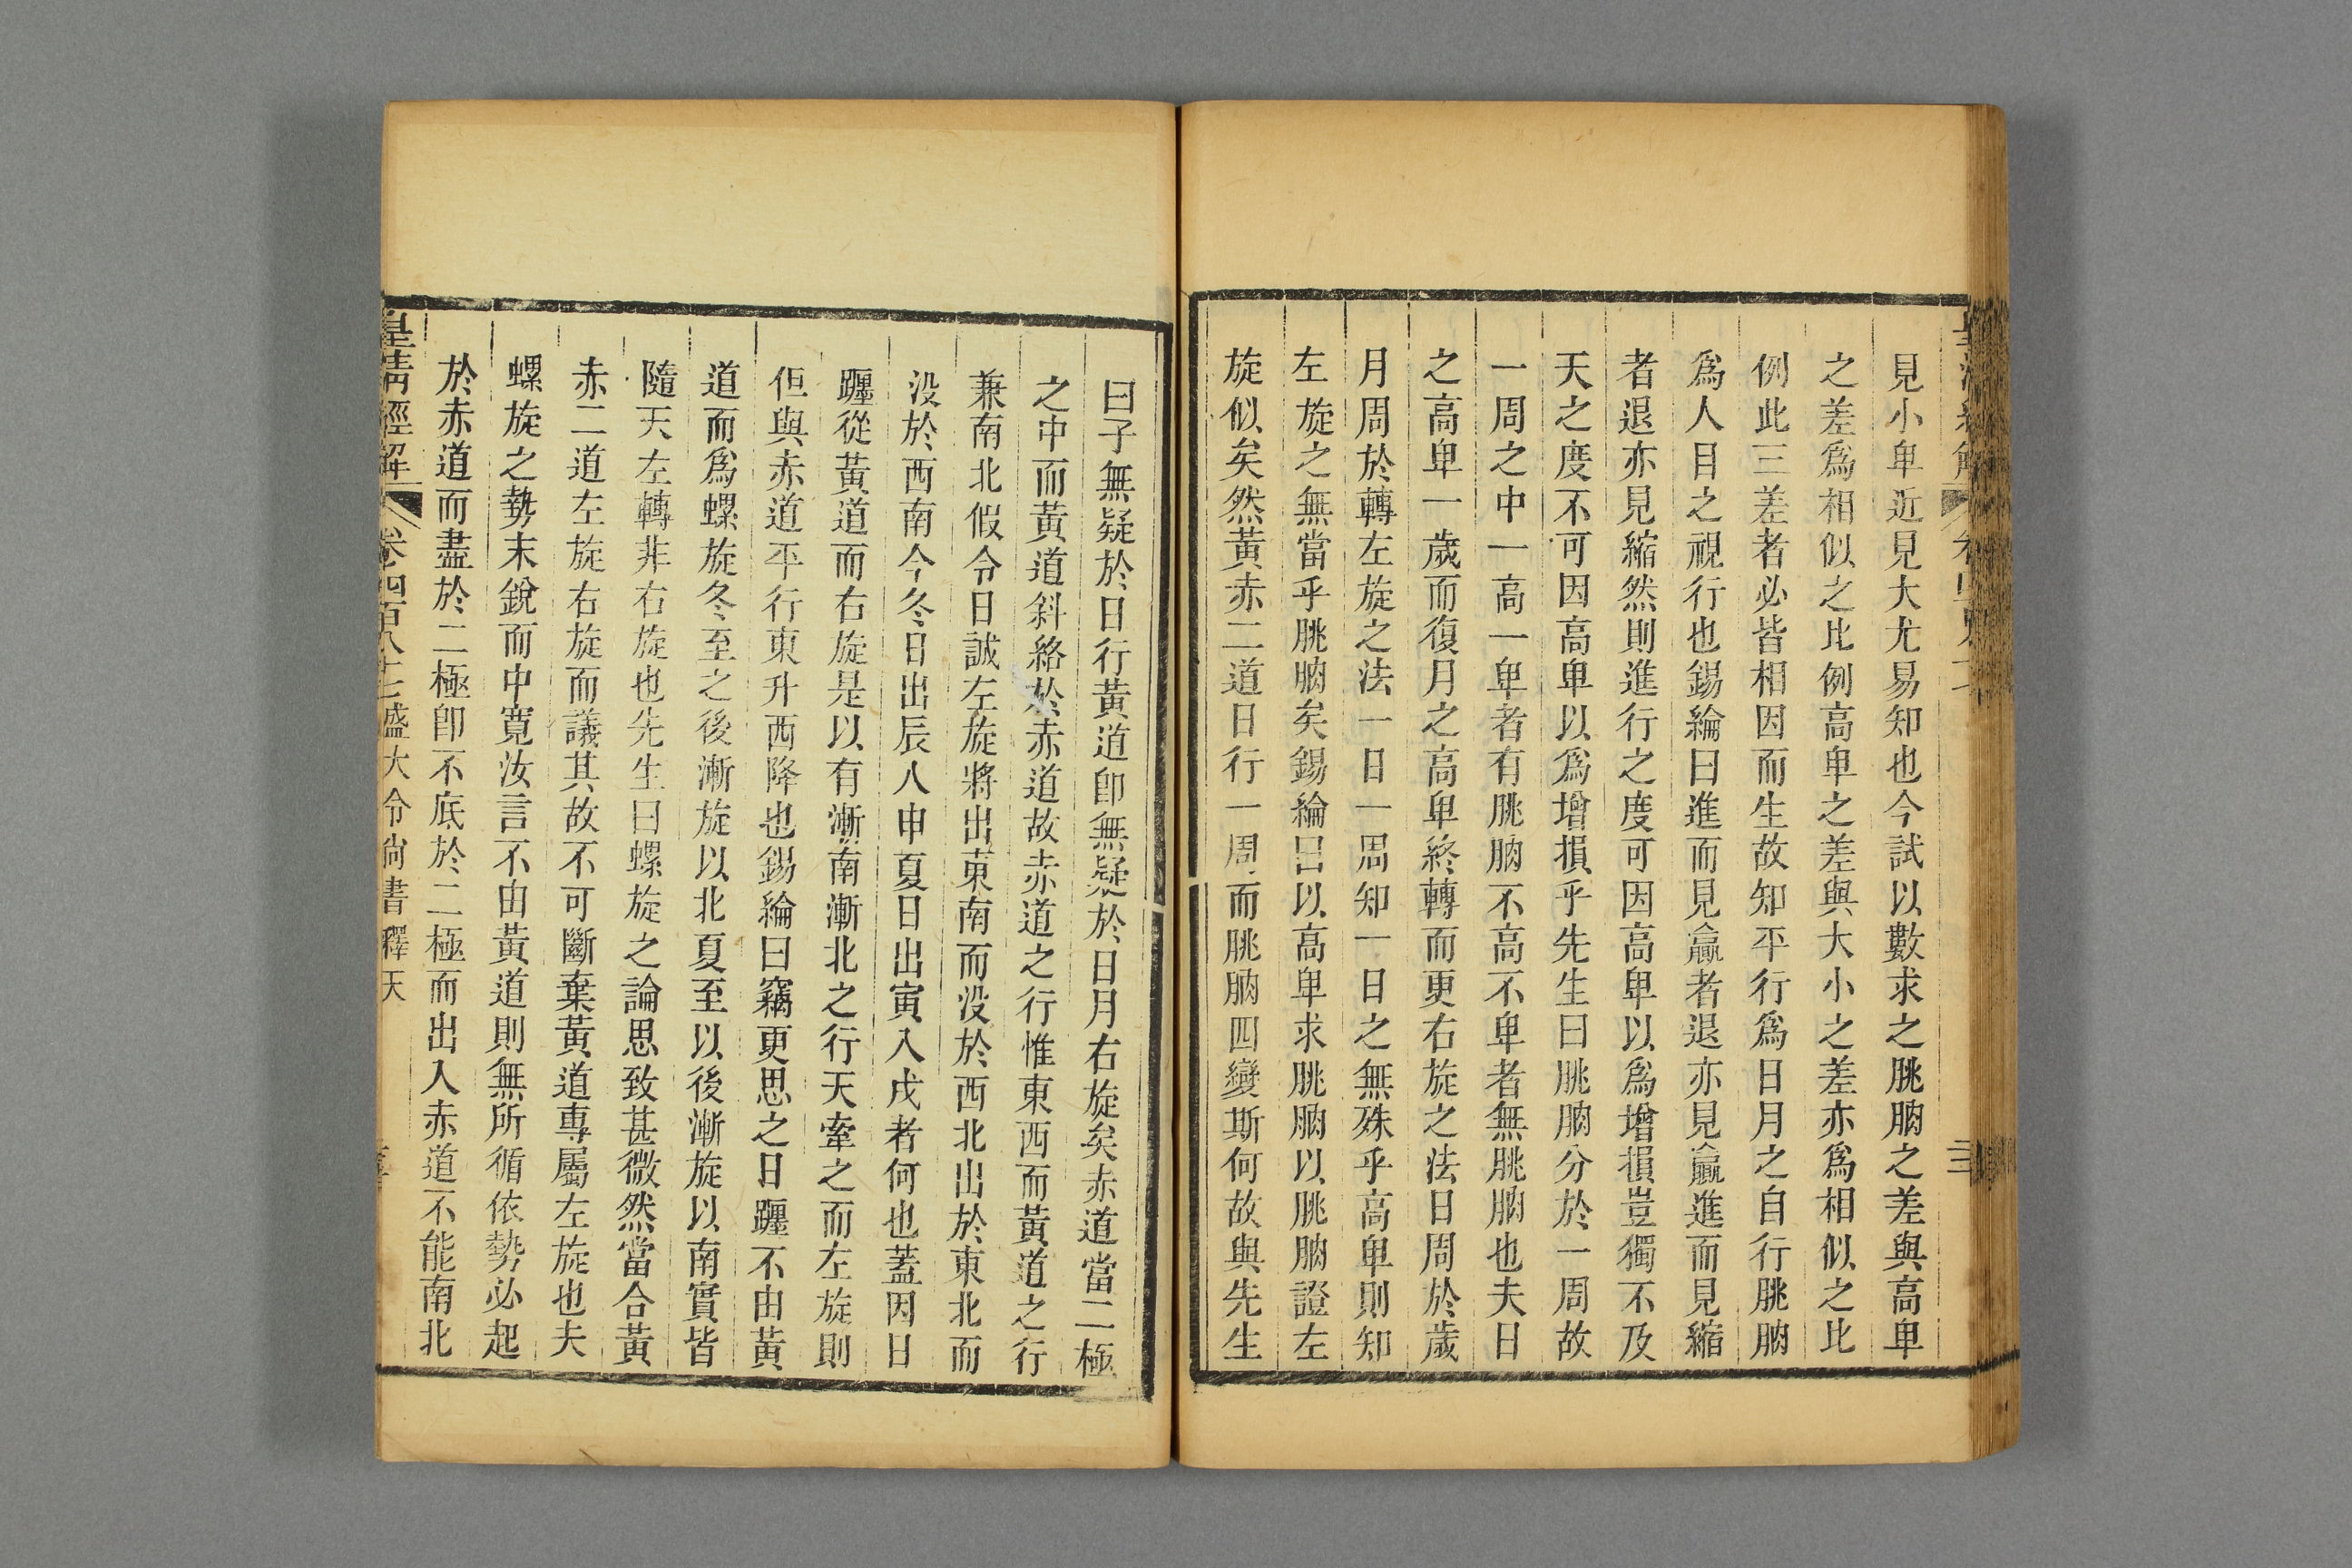 見小卑近見大尤易知也今試以數求之朓朒之差與高卑
之差爲相似之比例高卑之差與大小之差亦爲相似之比
例此三差者必皆相因而生故知平行爲日月之自行朓朒
爲人目之視行也錫綸曰進而見贏者退亦見贏進而見縮
者退亦見縮然則進行之度可因高卑以爲增損豈獨不及
天之度不可因高卑以爲增損乎先生曰朓朒分於一周故
一周之中一高一卑者有朓朒不高不卑者無朓朒也夫日
之高卑一歲而復月之高卑終轉而更右旋之法日周於歲
月周於轉左旋之法一日一周知一日之無殊乎高卑則知
左旋之無當乎朓朒矣錫綸曰以高卑求朓朒以朓朒證左
旋似矣然黃赤二道日行一周而朓朒四變斯何故與先生
曰子無疑於日行黃道卽無疑於日月右旋矣赤道當二極
之中而黃道斜絡於赤道故赤道之行惟東西而黃道之行
兼南北假令日誠左旋將出東南而没於西北出於東北而
没於西南今冬日出辰入申夏日出寅入戌者何也蓋因日
躔從黃道而右旋是以有漸南漸北之行天牽之而左旋則
但與赤道平行東升西降也錫綸曰竊更思之日躔不由黃
道而爲螺旋冬至之後漸旋以北夏至以後漸旋以南實皆
隨天左轉非右旋也先生曰螺旋之論思致甚微然當合黃
赤二道左旋右旋而議其故不可斷棄黃道專屬左旋也夫
螺旋之勢末銳而中寬汝言不由黃道則無所循依勢必起
於赤道而盡於二極卽不底於二極而出入赤道不能南北
皇清經解 卷四百八十七 盛大令尙書釋天